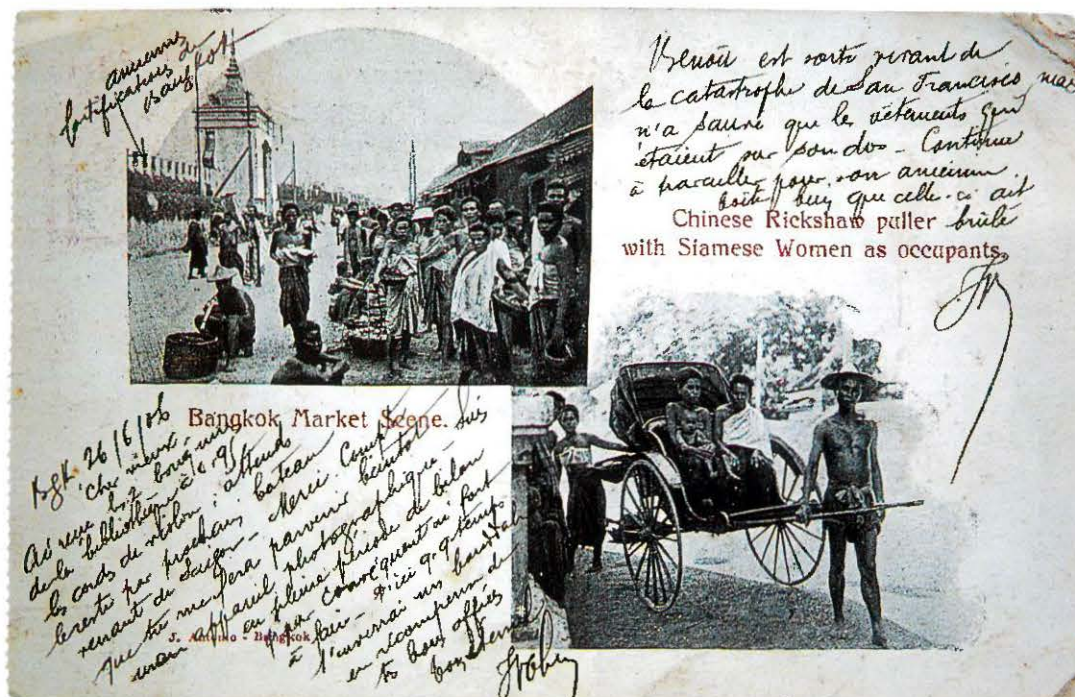 anciennes
fortifications de
Bangkok
Benoît est sorti vivant de
la catastrophe de San Francisco mais
n'a sauvé que les vêtements qui
étaient sur son dos - Continue
à travailler pour son ancienne
boîte bien que celle-ci ait
brûlé
Chinese Rickshaw puller
with Siamese Women as occupants.
Bangkok Market Scene.
Bgk. 26/6/06
Cher vieux,
Ai reçu les 2 bouquins
de la bibliothèque à 0.95
les cordes de violon; attends
le reste par prochain bateau
venant de Saigon - Merci. Compte
que tu me feras parvenir bientôt
mon appareil photographique - Suis
en pleine période de bilan
par conséquent ai fort
à faire - D'ici q.q. temps
t'enverrai un
en récompense de
tes bons offices
J. Antonio - Bangkok